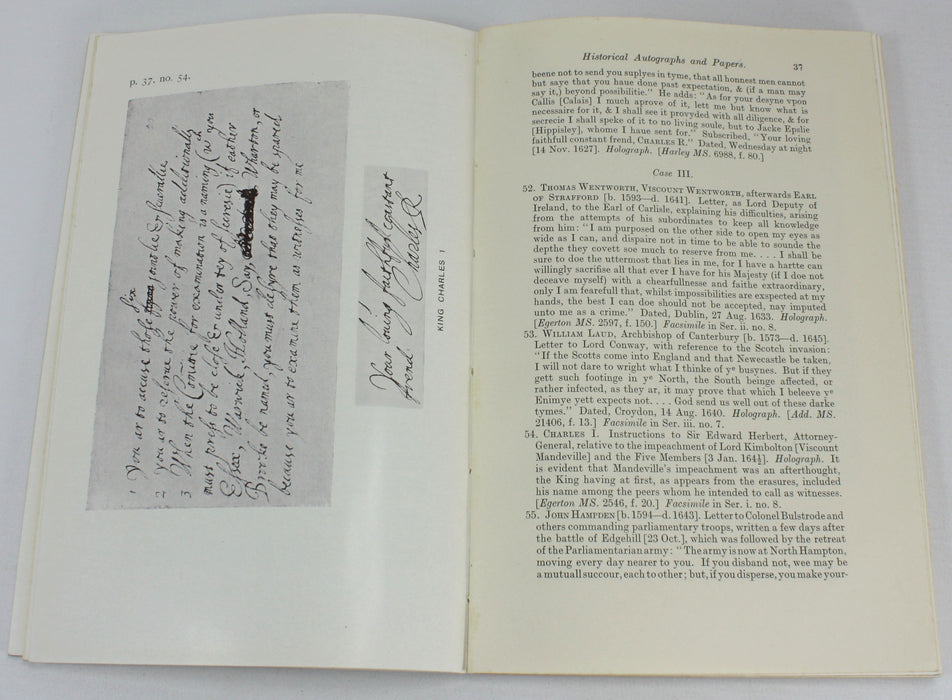 p. 37, no. 54.
1 You ar to accuse those six joyntlie & severallie.
2 you ar to reserve the power of making additionally
3 When the Comitie for examination is a naming (wch you
must press to be close & under tey of secresie) if eather
Essex, Warwick, Holland, Say, Wharton, or
Brooke be named, you must desyre that they may be spared
because you ar to examine them as witnesses for me
Your loving faithfull constant
frend Charles R
KING CHARLES I
Historical Autographs and Papers. 37
beene not to send you suplyes in tyme, that all honnest men cannot
but saye that you haue done past expectation, & (if a man may
say it,) beyond possibilitie." He adds: "As for your desyne vpon
Callis [Calais] I much aprove of it, lett me but know what is
necessaire for it, & I shall see it provyded with all diligence, & for
secrecie I shall speke of it to no living soule, but to Jacke Epslie
[Hippisley], whome I haue sent for." Subscribed, "Your loving
faithfull constant frend, CHARLES R." Dated, Wednesday at night
[14 Nov. 1627]. Holograph. [Harley MS. 6988, f. 80.]
Case III.
52. THOMAS WENTWORTH, VISCOUNT WENTWORTH, afterwards EARL
OF STRAFFORD [b. 1593—d. 1641]. Letter, as Lord Deputy of
Ireland, to the Earl of Carlisle, explaining his difficulties, arising
from the attempts of his subordinates to keep all knowledge
from him: "I am purposed on the other side to open my eyes as
wide as I can, and dispaire not in time to be able to sounde the
depthe they covett soe much to reserve from me. . . . I shall be
sure to doe the uttermost that lies in me, for I have a hartte can
willingly sacrifise all that ever I have for his Majesty (if I doe not
deceave myself) with a chearfullnesse and faithe extraordinary,
only I am fearefull that, whilst impossibilities are exspected at my
hands, the best I can doe should not be accepted, nay imputed
unto me as a crime." Dated, Dublin, 27 Aug. 1633. Holograph.
[Egerton MS. 2597, f. 150.] Facsimile in Ser. ii. no. 8.
53. WILLIAM LAUD, Archbishop of Canterbury [b. 1573—d. 1645].
Letter to Lord Conway, with reference to the Scotch invasion:
"If the Scotts come into England and that Newcastle be taken,
I will not dare to wright what I thinke of ye busynes. But if they
gett such footinge in ye North, the South beinge affected, or
rather infected, as they ar, it may prove that which I beleeve ye
Enimye yett expects not. . . . God send us well out of these darke
tymes." Dated, Croydon, 14 Aug. 1640. Holograph. [Add. MS.
21406, f. 13.] Facsimile in Ser. iii. no. 7.
54. CHARLES I. Instructions to Sir Edward Herbert, Attorney-
General, relative to the impeachment of Lord Kimbolton [Viscount
Mandeville] and the Five Members [3 Jan. 164½]. Holograph. It
is evident that Mandeville's impeachment was an afterthought,
the King having at first, as appears from the erasures, included
his name among the peers whom he intended to call as witnesses.
[Egerton MS. 2546, f. 20.] Facsimile in Ser. i. no. 8.
55. JOHN HAMPDEN [b. 1594—d. 1643]. Letter to Colonel Bulstrode and
others commanding parliamentary troops, written a few days after
the battle of Edgehill [23 Oct.], which was followed by the retreat
of the Parliamentarian army: "The army is now at North Hampton,
moving every day nearer to you. If you disband not, wee may be
a mutuall succour, each to other; but, if you disperse, you make your-